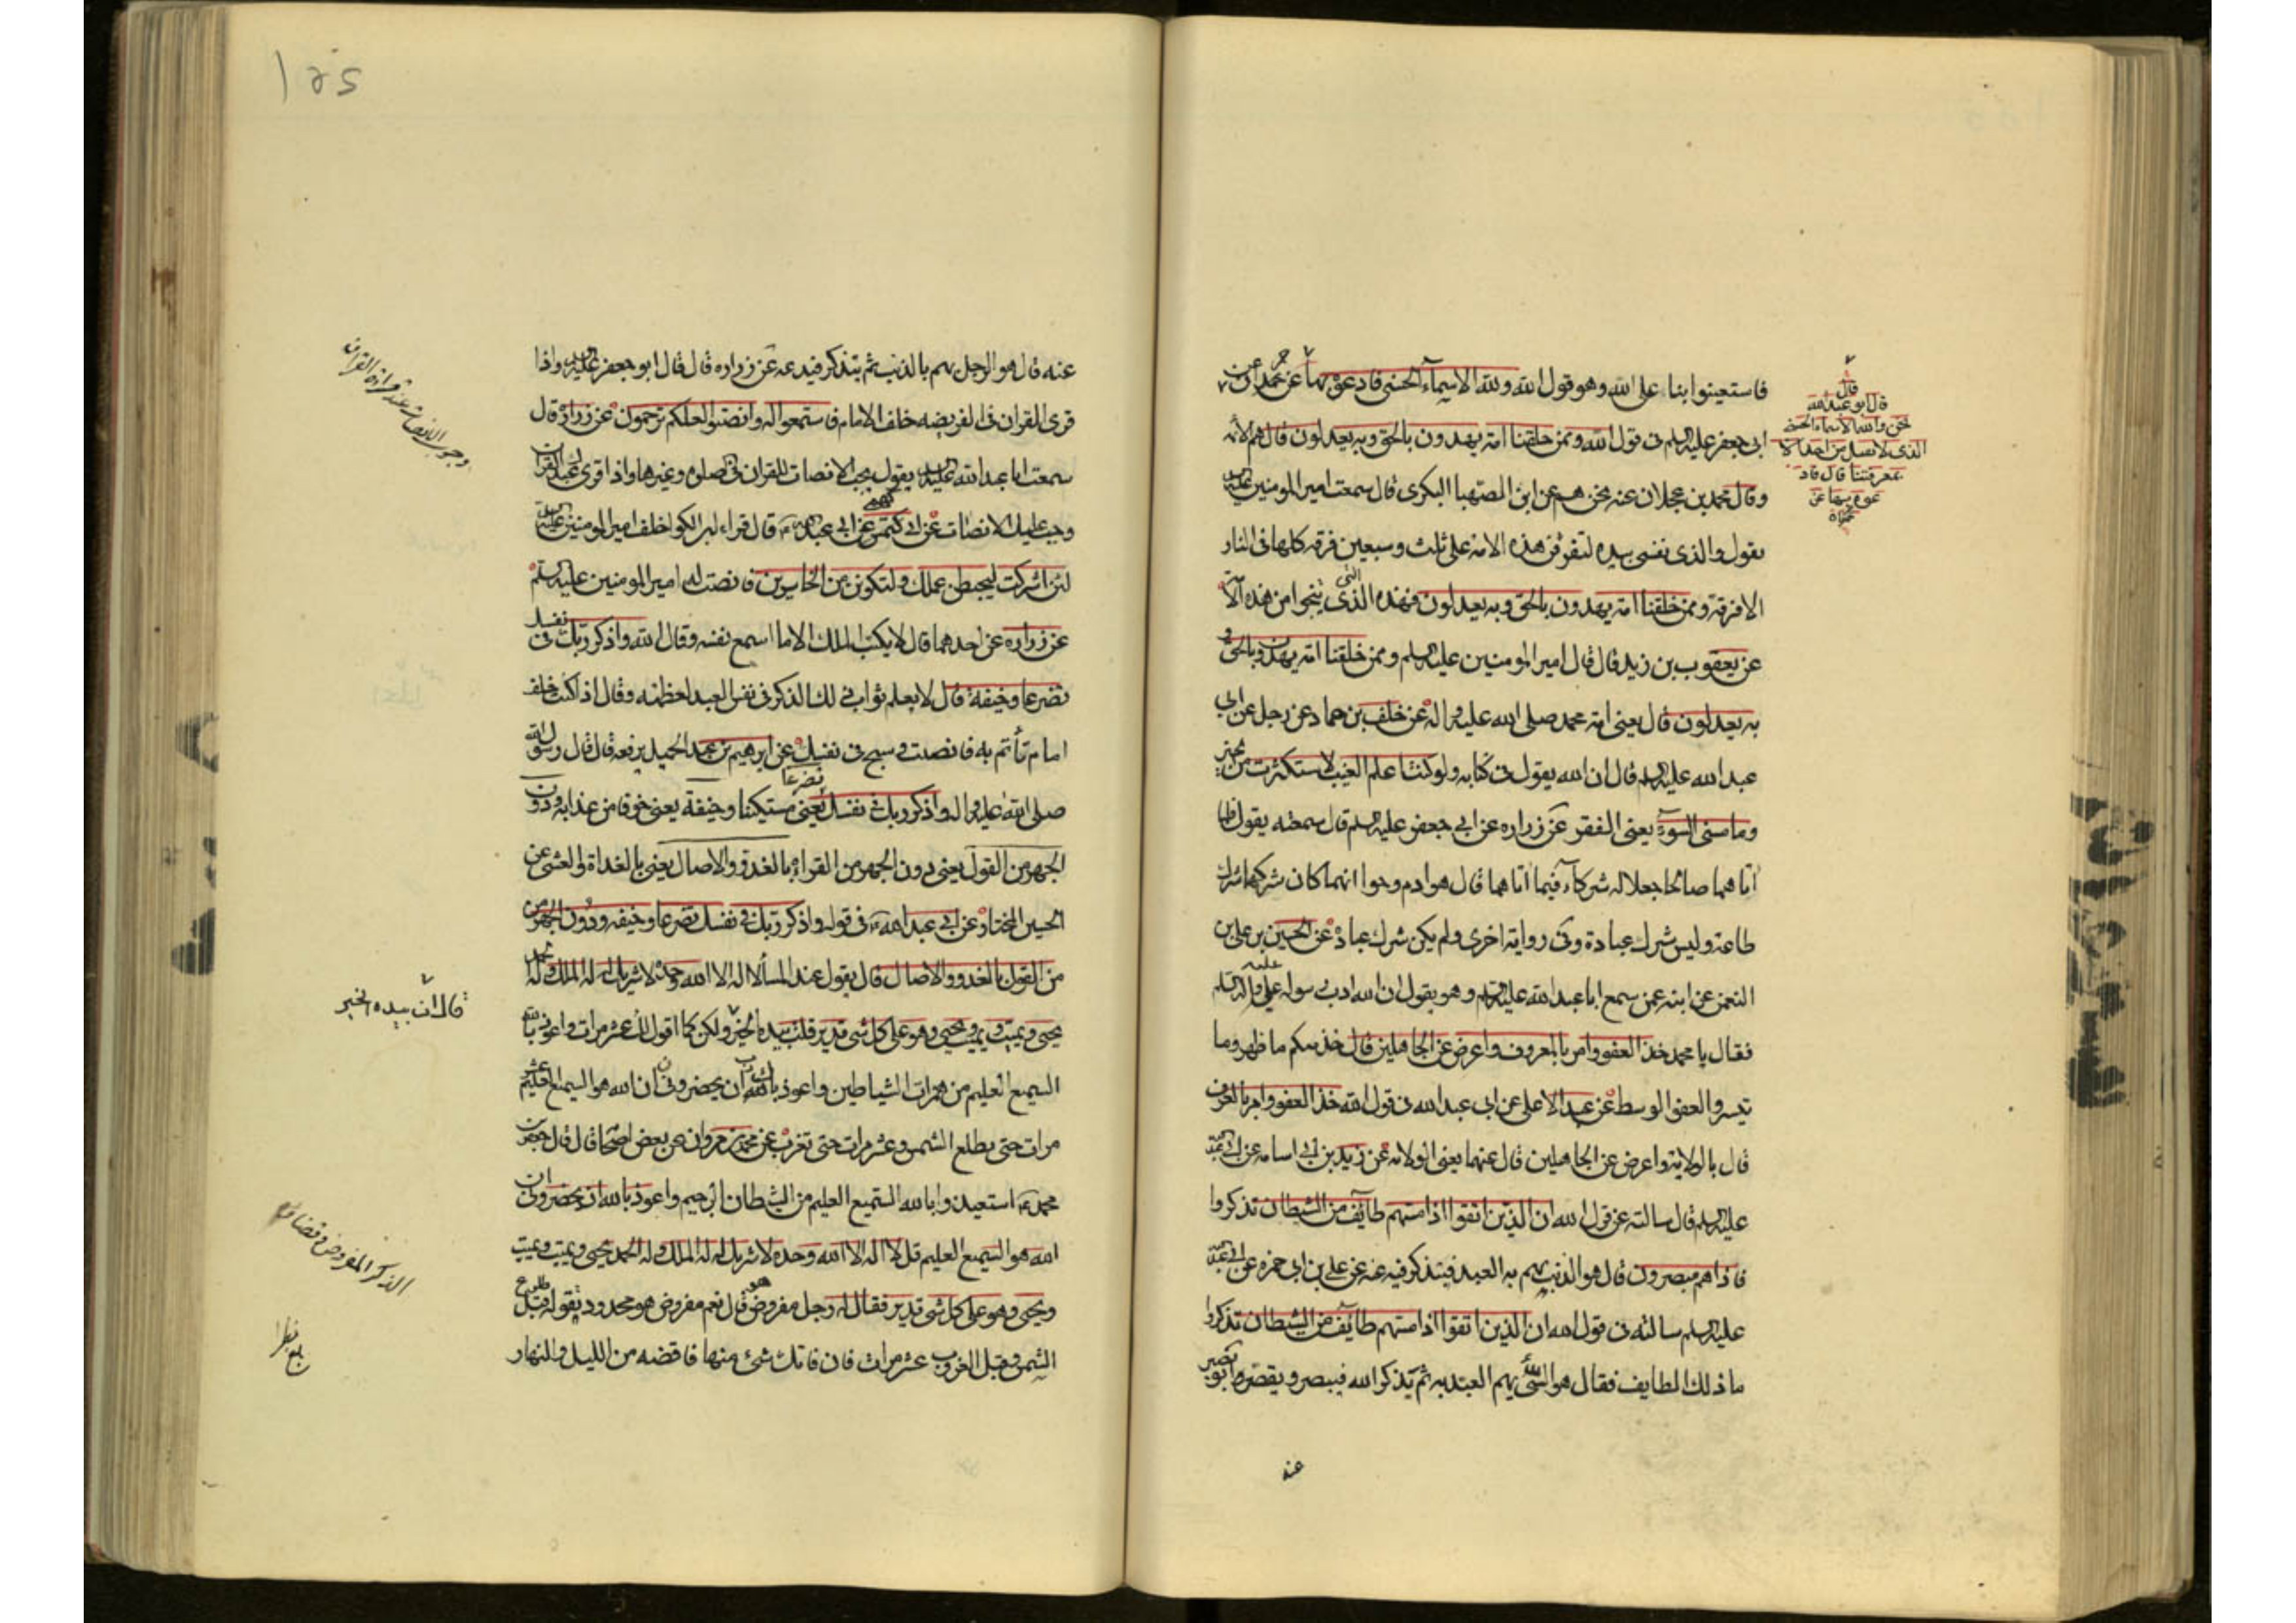 فاستعينوا بنا على الله وهو قول الله ولله الاسماء الحسنى فادعوه بها عن حمران عن
ابى جعفر عليه السلم فى قول الله وممن خلقنا امة يهدون بالحق وبه يعدلون قال هم الائمه
وقال محمد بن عجلان عنه نحن هم عن ابن الصهبا البكرى قال سمعت امير المومنين عليه السلم
يقول والذى نفسى بيده لتفرقن هذه الامة على ثلث وسبعين فرقه كلها فى النار
الا فرقة وممن خلقنا امة يهدون بالحق وبه يعدلون فهذه التى ينجوا من هذه الامة
عن يعقوب بن زيد قال قال امير المومنين عليه السلم وممن خلقنا امة يهدون بالحق و
به يعدلون قال يعنى امة محمد صلى الله عليه واله عن خلف بن حماد عن رجل عن ابى
عبد الله عليه السلم قال ان الله يقول فى كتابه ولو كنت اعلم الغيب لاستكثرت من الخير
وما مسنى السوء يعنى الفقر عن زراره عن ابى جعفر عليه السلم قال سمعته يقول فلما
اتاهما صالحا جعلا له شركاء فيما اتاهما قال هو ادم وحوا انما كان شركهما شرك
طاعة وليس شرك عبادة وفى رواية اخرى ولم يكن شرك عبادة عن الحسين بن على بن
النعمن عن ابيه عمن سمع ابا عبد الله عليه السلم وهو يقول ان الله ادب رسوله عليه واله السلم
فقال يا محمد خذ العفو وامر بالمعروف واعرض عن الجاهلين قال خذ منهم ما ظهر وما
تيسر والعفو الوسط عن عبد الاعلى عن ابى عبد الله فى قول الله خذ العفو وامر بالعرف
قال بالولاية واعرض عن الجاهلين قال عنها يعنى الولاية عن زيد بن ابى اسامه عن ابى عبد الله
عليه السلم قال سالته عن قول الله ان الذين اتقوا اذا مسهم طايف من الشيطان تذكروا
فاذا هم مبصرون قال هو الذنب يهم به العبد فيتذكر فيدعه عن على بن ابى حمزه عن ابى عبد الله
عليه السلم سالته فى قول الله ان الذين اتقوا اذا مسهم طايف من الشيطان تذكروا
ما ذلك الطايف فقال هو السئ يهم العبد به ثم يذكر الله فيبصر ويقصر ابو بصير
عنه
قال
قال ابو عبد الله
نحن والله الاسماء الحسنى
الذى لا يقبل من احد الا
بمعرفتنا قال فاد
عوه بها عن
حمران
١٥٤
عنه قال هو الرجل يهم بالذنب ثم يتذكر فيدعه عن زراره قال قال ابو جعفر عليه السلم واذا
قرى القران فى الفريضه خلف الامام فاستمعوا له وانصتوا لعلكم ترحمون عن زراره قال
سمعت ابا عبد الله عليه السلم يقول يجب الانصات للقران فى الصلوة وغيرها واذا قرى عندك القران
وجب عليك الانصات عن ابى كهمس عن ابى عبد الله قال قراء ابن الكوا خلف امير المومنين عليه السلم
لئن اشركت ليحبطن عملك ولتكونن من الخاسرين فانصت له امير المومنين عليه السلم
عن زراره عن احدهما قال لا يكتب الملك الا ما اسمع نفسه وقال الله واذكر ربك فى نفسك
تضرعا وخيفة قال لا يعلم ثواب ذلك الذكر فى نفس العبد لعظمته وقال اذا كنت خلف
امام تأتم به فانصت وسبح فى نفسك عن ابرهيم بن عبد الحميد يرفعه قال قال رسول الله
صلى الله عليه واله واذكر ربك فى نفسك تضرعا يعنى مستكينا وخيفة يعنى خوفا من عذابه ودون
الجهر من القول يعنى دون الجهر من القراءة بالغدو والاصال يعنى بالغداة والعشى عن
الحسين المختار عن ابى عبد الله فى قوله واذكر ربك فى نفسك تضرعا وخيفه ودون الجهر من
من القول بالغدو والاصال قال يقول عند المسأ لا اله الا الله وحده لا شريك له له الملك وله الحمد
يحيى ويميت ويميت ويحيى وهو على كل شى قدير قلت بيده الخير ولكن كما اقول لك عشر مرات واعوذ بالله
السميع العليم من همزات الشياطين واعوذ بك رب ان يحضرون ان الله هو السميع العليم عشر
مرات حتى يطلع الشمس وعشر مرات حتى تغرب عن محمد بن مروان عن بعض اصحابنا قال قال جعفر بن
محمد استعيذوا بالله السميع العليم من الشيطان الرجيم واعوذ بالله ان يحضرون ان
الله هو السميع العليم قل لا اله الا الله وحده لا شريك له له الملك وله الحمد يحيى ويميت ويميت
ويحيى وهو على كل شى قدير فقال له رجل مفروض هو قال نعم مفروض هو محدود تقوله قبل طلوع
الشمس وقبل الغروب عشر مرات فان فاتك شئ منها فاقضه من الليل والنهار
وجوب الانصات عند قراءة القران
قال ان بيده الخير
الذكر المفروض وقضاؤه
بلغ نظرا